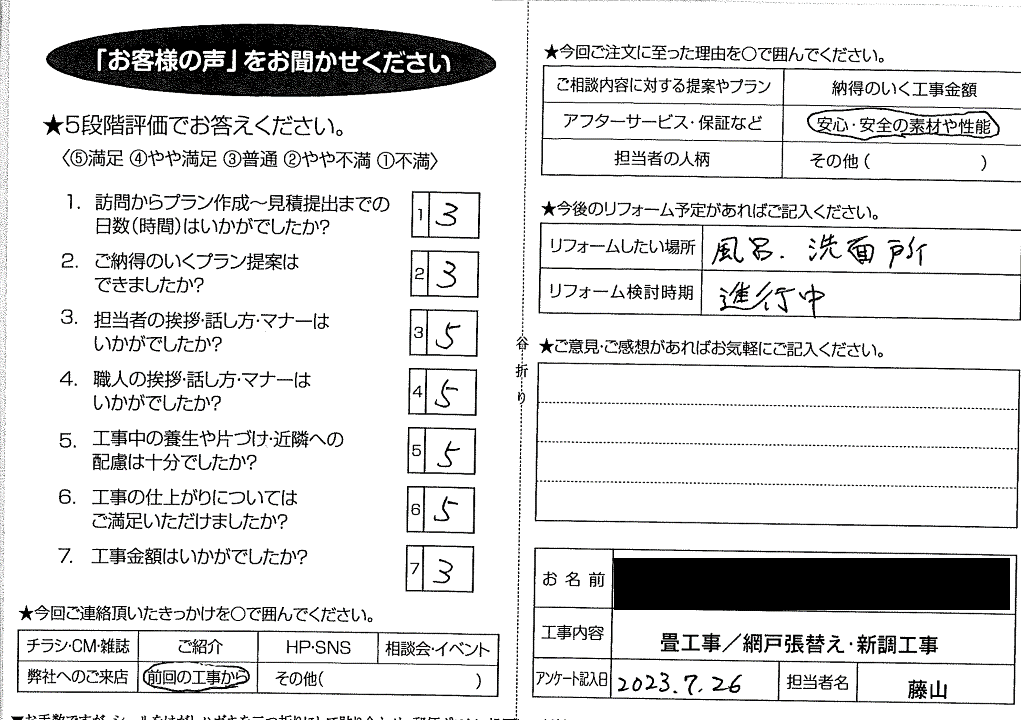 「お客様の声」をお聞かせください
★5段階評価でお答えください。
〈⑤満足 ④やや満足 ③普通 ②やや不満 ①不満〉
1. 訪問からプラン作成～見積提出までの
日数(時間)はいかがでしたか?
1 3
2. ご納得のいくプラン提案は
できましたか?
2 3
3. 担当者の挨拶・話し方・マナーは
いかがでしたか?
3 5
4. 職人の挨拶・話し方・マナーは
いかがでしたか?
4 5
5. 工事中の養生や片づけ・近隣への
配慮は十分でしたか?
5 5
6. 工事の仕上がりについては
ご満足いただけましたか?
6 5
7. 工事金額はいかがでしたか?
7 3
★今回ご連絡頂いたきっかけを○で囲んでください。
チラシ・CM・雑誌 ご紹介 HP・SNS 相談会・イベント
弊社へのご来店 前回の工事から その他( )
谷折り
★今回ご注文に至った理由を○で囲んでください。
ご相談内容に対する提案やプラン 納得のいく工事金額
アフターサービス・保証など 安心・安全の素材や性能
担当者の人柄 その他( )
★今後のリフォーム予定があればご記入ください。
リフォームしたい場所 風呂.洗面所
リフォーム検討時期 進行中
★ご意見・ご感想があればお気軽にご記入ください。
お名前
工事内容 畳工事／網戸張替え・新調工事
アンケート記入日 2023.7.26 担当者名 藤山